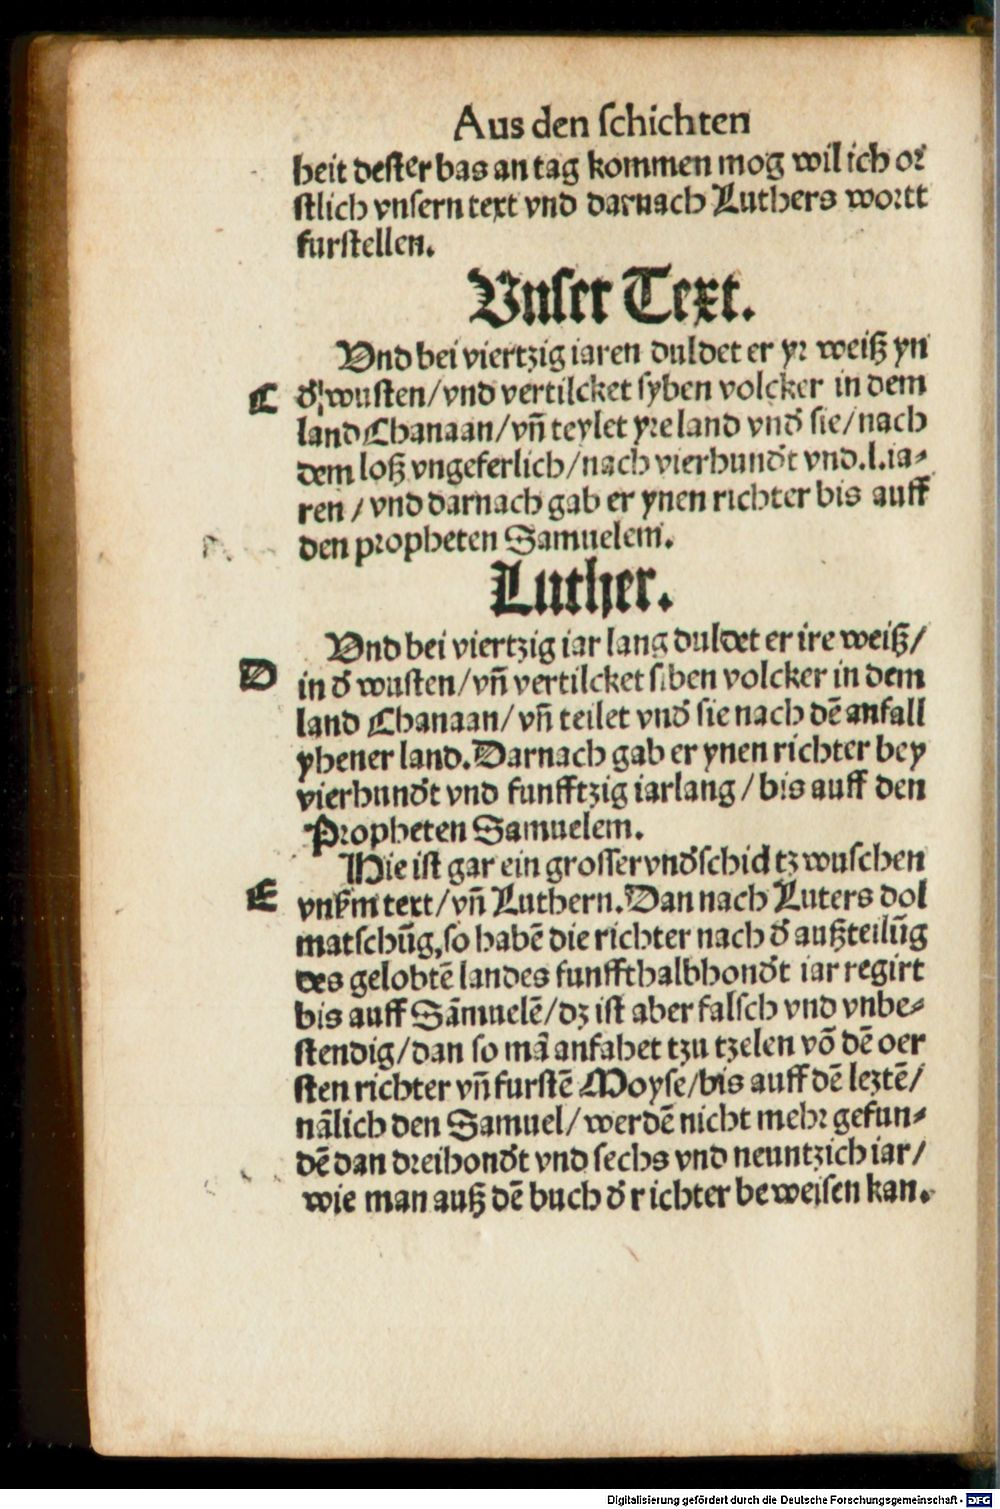 Aus den ſchichten
heit deſter bas an tag kommen mog wil ich or
ſtlich vnſern text vnd darnach Luthers wortt
furſtellen.
Vnſer Text.
Vnd bei viertzig iaren duldet er yr weiß yn
C
d̕ wuſten/vnd vertilcket ſyben volcker in dem
land Chanaan/vñ teylet yre land vnd̕ ſie/nach
dem loß vngeferlich/nach vierhund̕t vnd.l.ia⸗
ren/vnd darnach gab er ynen richter bis auff
den propheten Samuelem.
Luther.
Vnd bei viertzig iar lang duldet er ire weiß/
D
in d̕ wuſten/vñ vertilcket ſiben volcker in dem
land Chanaan/vñ teilet vnd̕ ſie nach dē anfall
yhener land.Darnach gab er ynen richter bey
vierhund̕t vnd funfftzig iarlang/bis auff den
Propheten Samuelem.
Hie iſt gar ein groſſer vnd̕ſchid tzwuſchen
E
vnſerm text/vñ Luthern.Dan nach Luters dol
matſchūg,ſo habē die richter nach d̕ außteilūg
des gelobtē landes funffthalbhond̕t iar regirt
bis auff Sāmuelē/dz iſt aber falſch vnd vnbe⸗
ſtendig/dan ſo mā anfahet tzu tzelen vō dē oer
ſten richter vñ furſtē Moyſe/bis auff dē leztē/
nālich den Samuel/werdē nicht mehr gefun⸗
dē dan dreihond̕t vnd ſechs vnd neuntzich iar/
wie man auß dē buch d̕ richter beweiſen kan.
Digitalisierung gefördert durch die Deutsche Forschungsgemeinschaft - DFG